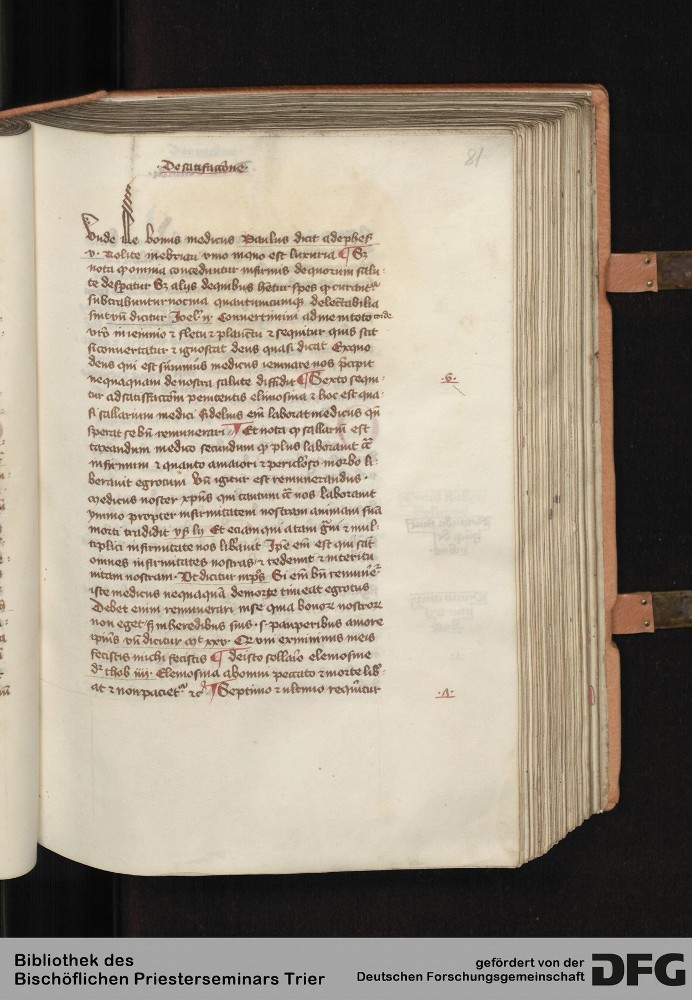 De satisfactōne
81
Vnde ille bonus medicus Paulus dicit ad ephes̄
v. Nolite inebriari vino in quo est luxuria ¶ Sꝫ
nota ꝙ omnia conceduntur infirmis de quorum salu-
te despatur Sꝫ alijs de quibus hētur spes ꝙ curantᷣ
subtrahuntur nociua quantumcumqꝫ delectabilia
sint vn̄ dicitur Joel' ij Conuertimini ad me in toto corde
vr̄o in ieiunio ⁊ fletu ⁊ planctu ⁊ sequitur quis scit
si conuertatur ⁊ ignoscat deus quasi dicat Ex quo
deus qui est sūmus medicus ieiunare nos p̄cipit
nequaquam de nostra salute diffidit ¶ Sexto sequi-
tur ad satisfactōem penitentis elimosina ⁊ hoc est qua-
si sallarium medici fidelius em̄ laborat medicus qn̄
sperat se bn̄ remunerari ¶ Et nota ꝙ sallariū est
taxandum medico secundum ꝙ plus laborauit cᷓ
infirmum ⁊ quanto a maiori ⁊ periculoso morbo li-
berauit egrotum Vn̄ igitur est remunerandus
medicus noster xp̄us qui tantum cᷓ nos laborauit
ymmo propter infirmitatem nostram animam suā
morti tradidit ys̄ lij Et eciam qui a tam gᷓui ⁊ mul-
tiplici infirmitate nos lib'auit Ip̄e em̄ est qui sāt
omnes infirmitates nostras ⁊ redemit de interitu
uitam nostram. Vt dicitur in ps̄. Si em̄ bn̄ remune'
iste medicus nequaquā de morte timeat egrotus
Debet enim remunerari in se quia bonoꝝ nostroꝝ
non eget sꝫ in heredibus suis .s. pauperibus amore
ip̄ius vn̄ dicitur mt̄ xxv. Qꝛ vni ex minimis meis
fecistis michi fecistis ¶ de isto sollario elemosine
dꝛ thob iiij. Elemosina ab omni peccato ⁊ morte lib'
at ⁊ non pacietᷣ ⁊c̄ ¶ Septimo ⁊ ultimo requiritur
.6.
.A.
Bibliothek des
Bischöflichen Priesterseminars Trier
gefördert von der
Deutschen Forschungsgemeinschaft
DFG